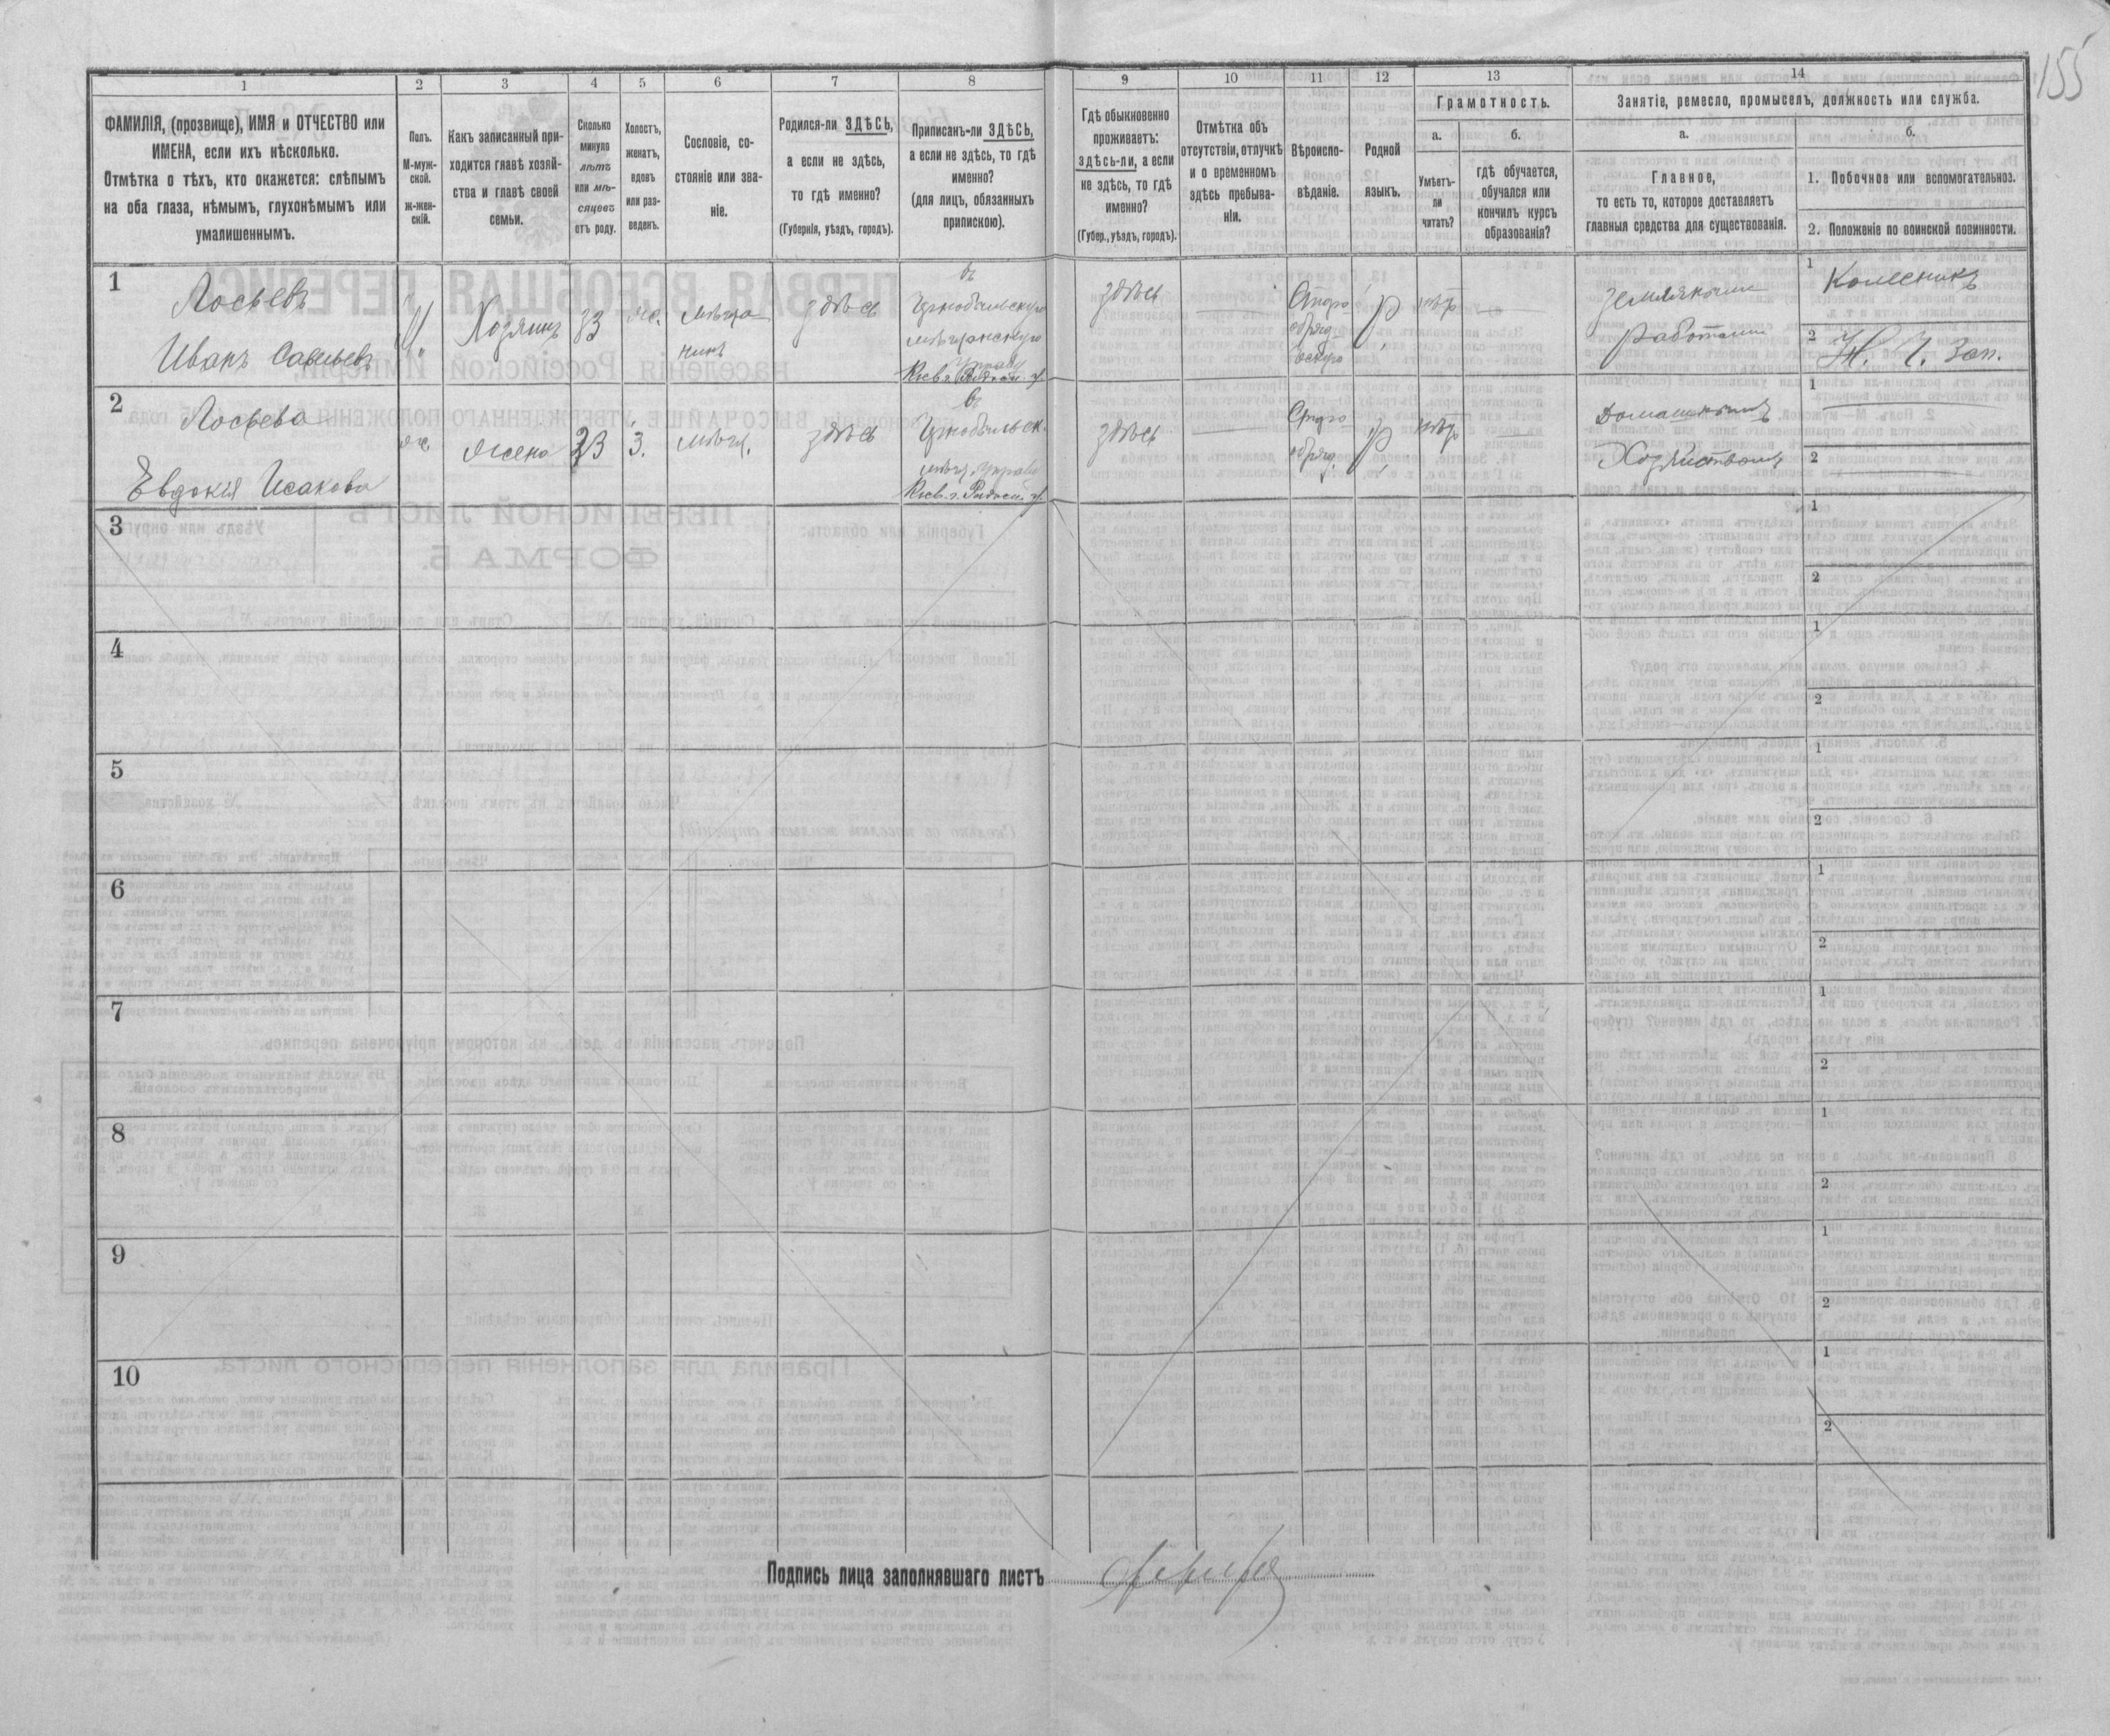 155
1
2
3
4
5
6
7
8
9
10
11
12
13
14
ФАМИЛІЯ, (прозвище), ИМЯ и ОТЧЕСТВО или
ИМЕНА, если ихъ нѣсколько.
Отмѣтка о тѣхъ, кто окажется: слѣпымъ
на оба глаза, нѣмымъ, глухонѣмымъ или
умалишеннымъ.
Полъ.
М-муж-
ской.
ж-жен-
скій.
Какъ записанный при-
ходится главѣ хозяй-
ства и главѣ своей
семьи.
Сколько
минуло
лѣтъ
или мѣ-
сяцевъ
отъ роду.
Холостъ,
женатъ,
вдовъ
или раз-
веденъ.
Сословіе, со-
стояніе или зва-
ніе.
Родился-ли ЗДѢСЬ,
а если не здѣсь,
то гдѣ именно?
(Губернія, уѣздъ, городъ).
Приписанъ-ли ЗДѢСЬ,
а если не здѣсь, то гдѣ
именно?
(для лицъ, обязанныхъ
припискою).
Гдѣ обыкновенно
проживаетъ:
здѣсь-ли, а если
не здѣсь, то гдѣ
именно?
(Губер., уѣздъ, городъ).
Отмѣтка объ
отсутствіи, отлучкѣ
и о временномъ
здѣсь пребыва-
ніи.
Вѣроиспо-
вѣданіе.
Родной
языкъ.
Грамотность.
а.
Умѣетъ-
ли
читать?
б.
гдѣ обучается,
обучался или
кончилъ курсъ
образованія?
Занятіе, ремесло, промыселъ, должность или служба.
а.
Главное,
то есть то, которое доставляетъ
главныя средства для существованія.
б.
1. Побочное или вспомогательноз.
2. Положеніе по воинской повинности.
1
Лосьевъ
Иванъ Савельевъ
М.
Хозяинъ
33
ж.
мѣща
нинъ
здѣсь
въ
мѣщанскую
управу
Кіев. г. Радом. у.
здѣсь
Старо
обряд
Р.
нѣтъ
работами
1
Колесникъ
2
Ж. 1. Зап.
2
Лосьева
Евдокія Исакова
ж.
жена
23
З.
мѣщ.
здѣсь
въ
мѣщ. управу
Кіев. г. Радом. у.
здѣсь
Старо
обряд.
Р.
нѣтъ
Домашнимъ
Хозяйствомъ
1
2
3
1
2
4
1
2
5
1
2
6
1
2
7
1
2
8
1
2
9
1
2
10
1
2
Подпись лица заполнявшаго листъ